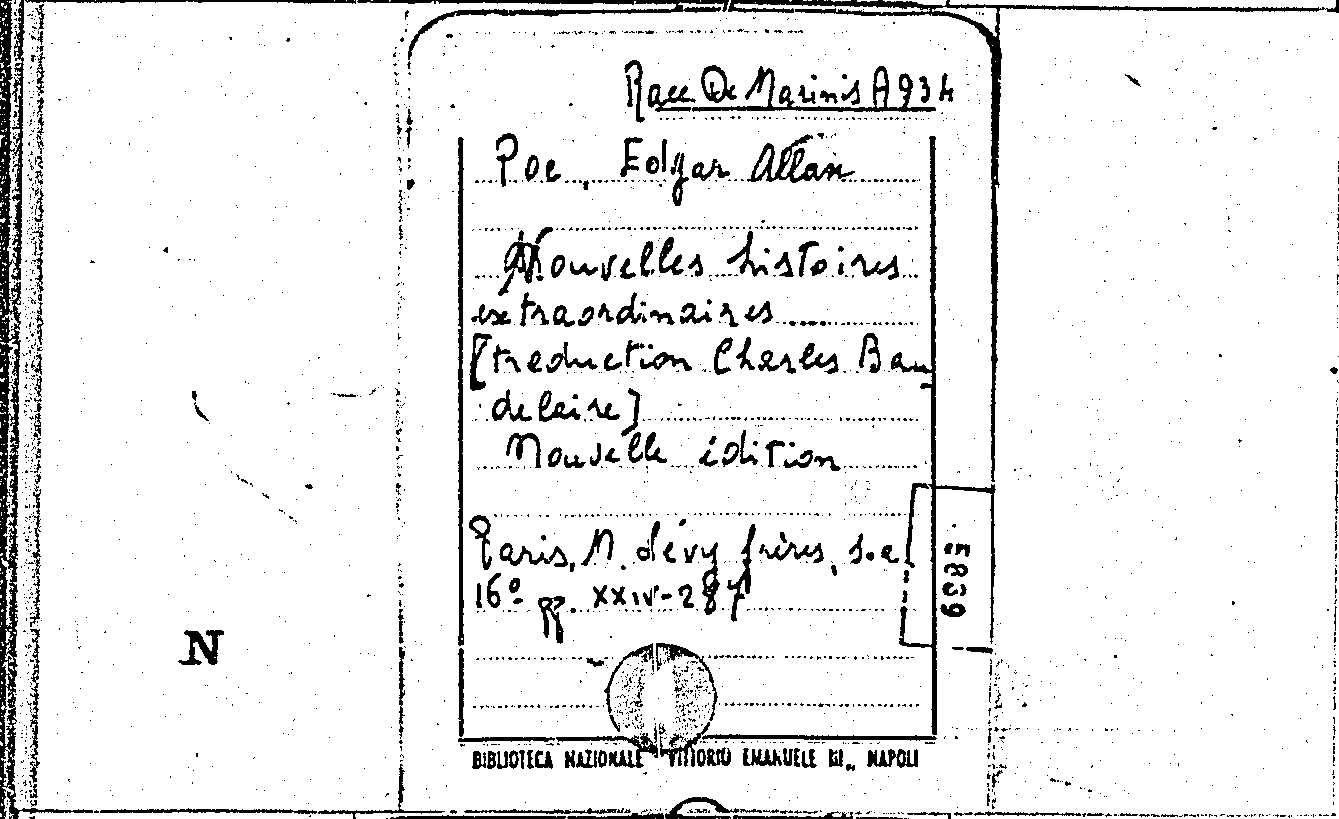 Racc De Marinis A 934
Poe, Edgar Allan
Nouvelles histoires
extraordinaires....
[traduction Charles Bau
delaire]
Nouvelle édition
Paris, M. Lévy frères, s.a.
16° pp. XXIV-287
E839
N
BIBLIOTECA NAZIONALE VITTORIO EMANUELE III., NAPOLI